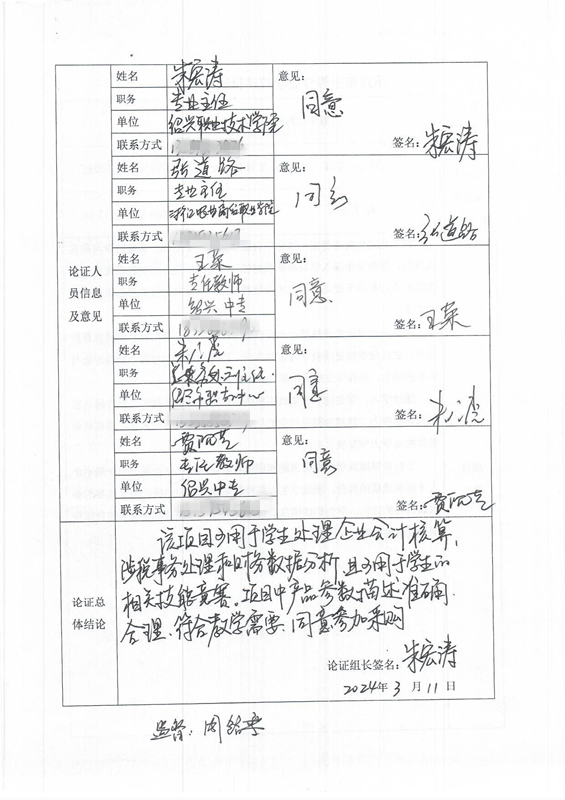 姓名 朱宏涛 意见：
职务 专业主任 同意
单位 绍兴职业技术学院
联系方式 签名：朱宏涛
姓名 张道路 意见：
职务 专业主任 同意
单位
联系方式 签名：张道路
论证人
员信息
及意见
姓名 王菜 意见：
职务 专任教师 同意
单位 绍兴中专
联系方式 签名：王菜
姓名 意见：
职务 同意
单位
联系方式 签名：
姓名 意见：
职务 专任教师 同意
单位 绍兴中专
联系方式 签名：
论证总
体结论
该项目可用于学生处理企业会计核算，
涉税事务处理和财务数据分析，且可用于学生的
相关技能竞赛。项目中产品参数描述准确、
合理、符合教学需要，同意参加采购
论证组长签名：朱宏涛
2024年3月11日
监督：周